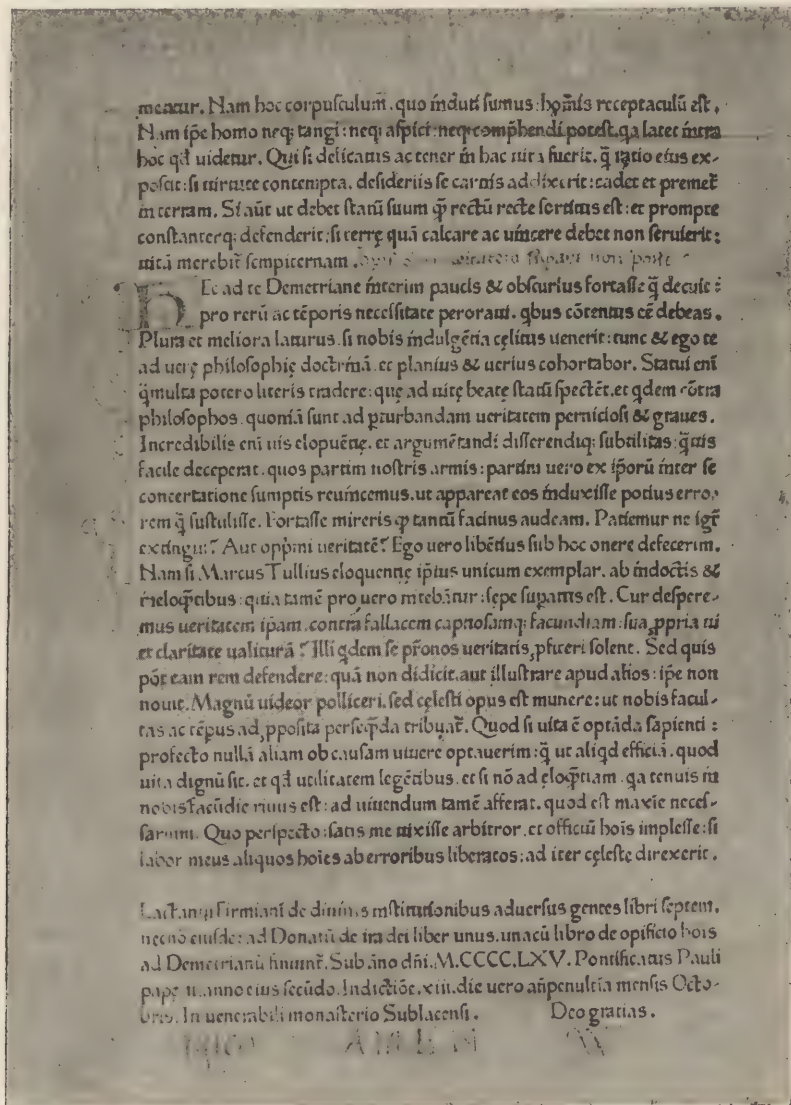 meatur. Nam hoc corpusculum̄. quo induti sumus: hoīnis receptaculū est.
Nam ipē homo neq; tangi: neq; aspici: neq; comp̄hendi potest. qa latet intra
hoc qd̄ uidetur. Qui si delicatus ac tener in hac uita fuerit. q̄ ratio eius ex-
poscit: si uirtute contempta. desideriis se carnis addixerit: cadet et premet̄
in terram. Si aūt ut debet statū suum qp̄ rectū recte sortitus est: et prompte
constanterq; defenderit: si terrę quā calcare ac uincere debet non seruierit:
uitā merebit̄ sempiternam.
Ec ad te Demetriane interim paucis & obscurius fortasse q̄ decuit:
pro rerū ac tēporis necessitate peroraui. qbus cōtentus eē debeas.
Plura et meliora laturus. si nobis indulgētia cęlitus uenerit: tunc & ego te
ad uerę philosophię doctrinā. et planius & uerius cohortabor. Statui eni
q̄multa potero literis tradere: quę ad uitę beatę statū spectēt. et qdem cōtra
philosophos. quoniā sunt ad pturbandam ueritatem perniciosi & graues.
Incredibilis eni uis eloquētię. et argumētandi differendiq; subtilitas: q̄uis
facile deceperat. quos partim nostris armis: partim uero ex ipōrū inter se
concertatione sumptis reuincemus. ut appareat eos induxisse potius erro-
rem q̄ sustulisse. Fortasse mireris qp̄ tantū facinus audeam. Patiemur ne igr̄
extingui? Aut opp̄mi ueritatē? Ego uero libētius sub hoc onere defecerim.
Nam si Marcus Tullius eloquentię ipīus unicum exemplar. ab indoctis &
ineloq̄tibus: quia tamē pro uero nitebātur: sepe supatus est. Cur despere-
mus ueritatem ipam. contra fallacem captiosamq; facundiam: sua ppria ui
et claritate ualiturā? Illi qdem se pr̄onos ueritatis pfiteri solent. Sed quis
pōt eam rem defendere: quā non didicit. aut illustrare apud alios: ipe non
nouit. Magnū uideor polliceri. sed cęlesti opus est munere: ut nobis facul-
tas ac tēpus ad pposita perseq̄da tribuat̄. Quod si uita ē optāda sapienti:
profecto nullā aliam ob causam uiuere optauerim: q̄ ut aliqd efficiā. quod
uita dignū sit. et qd̄ utilitatem legētibus. et si nō ad ęloq̄tiam. qa tenuis in
nobis facūdie riuus est: ad uiuendum tamē afferat. quod est maxīe neces-
sarium. Quo perspecto: satis me uixisse arbitror. et officiū hoīs implesse: si
labor meus aliquos hoīes ab erroribus liberatos: ad iter cęleste direxerit.
Lactantii Firmiani de diuinis institutionibus aduersus gentes libri septem.
necnō eiusdē: ad Donatū de ira dei liber unus. unacū libro de opificio hoīs
ad Demetrianū finiunt̄. Sub āno dñi. M.CCCC.LXV. Pontificatus Pauli
pape ii. anno eius secūdo. Indictiōe. xiii. die uero añpenultīa mensis Octo-
bris. In uenerabili monasterio Sublacensi. Deo gratias.